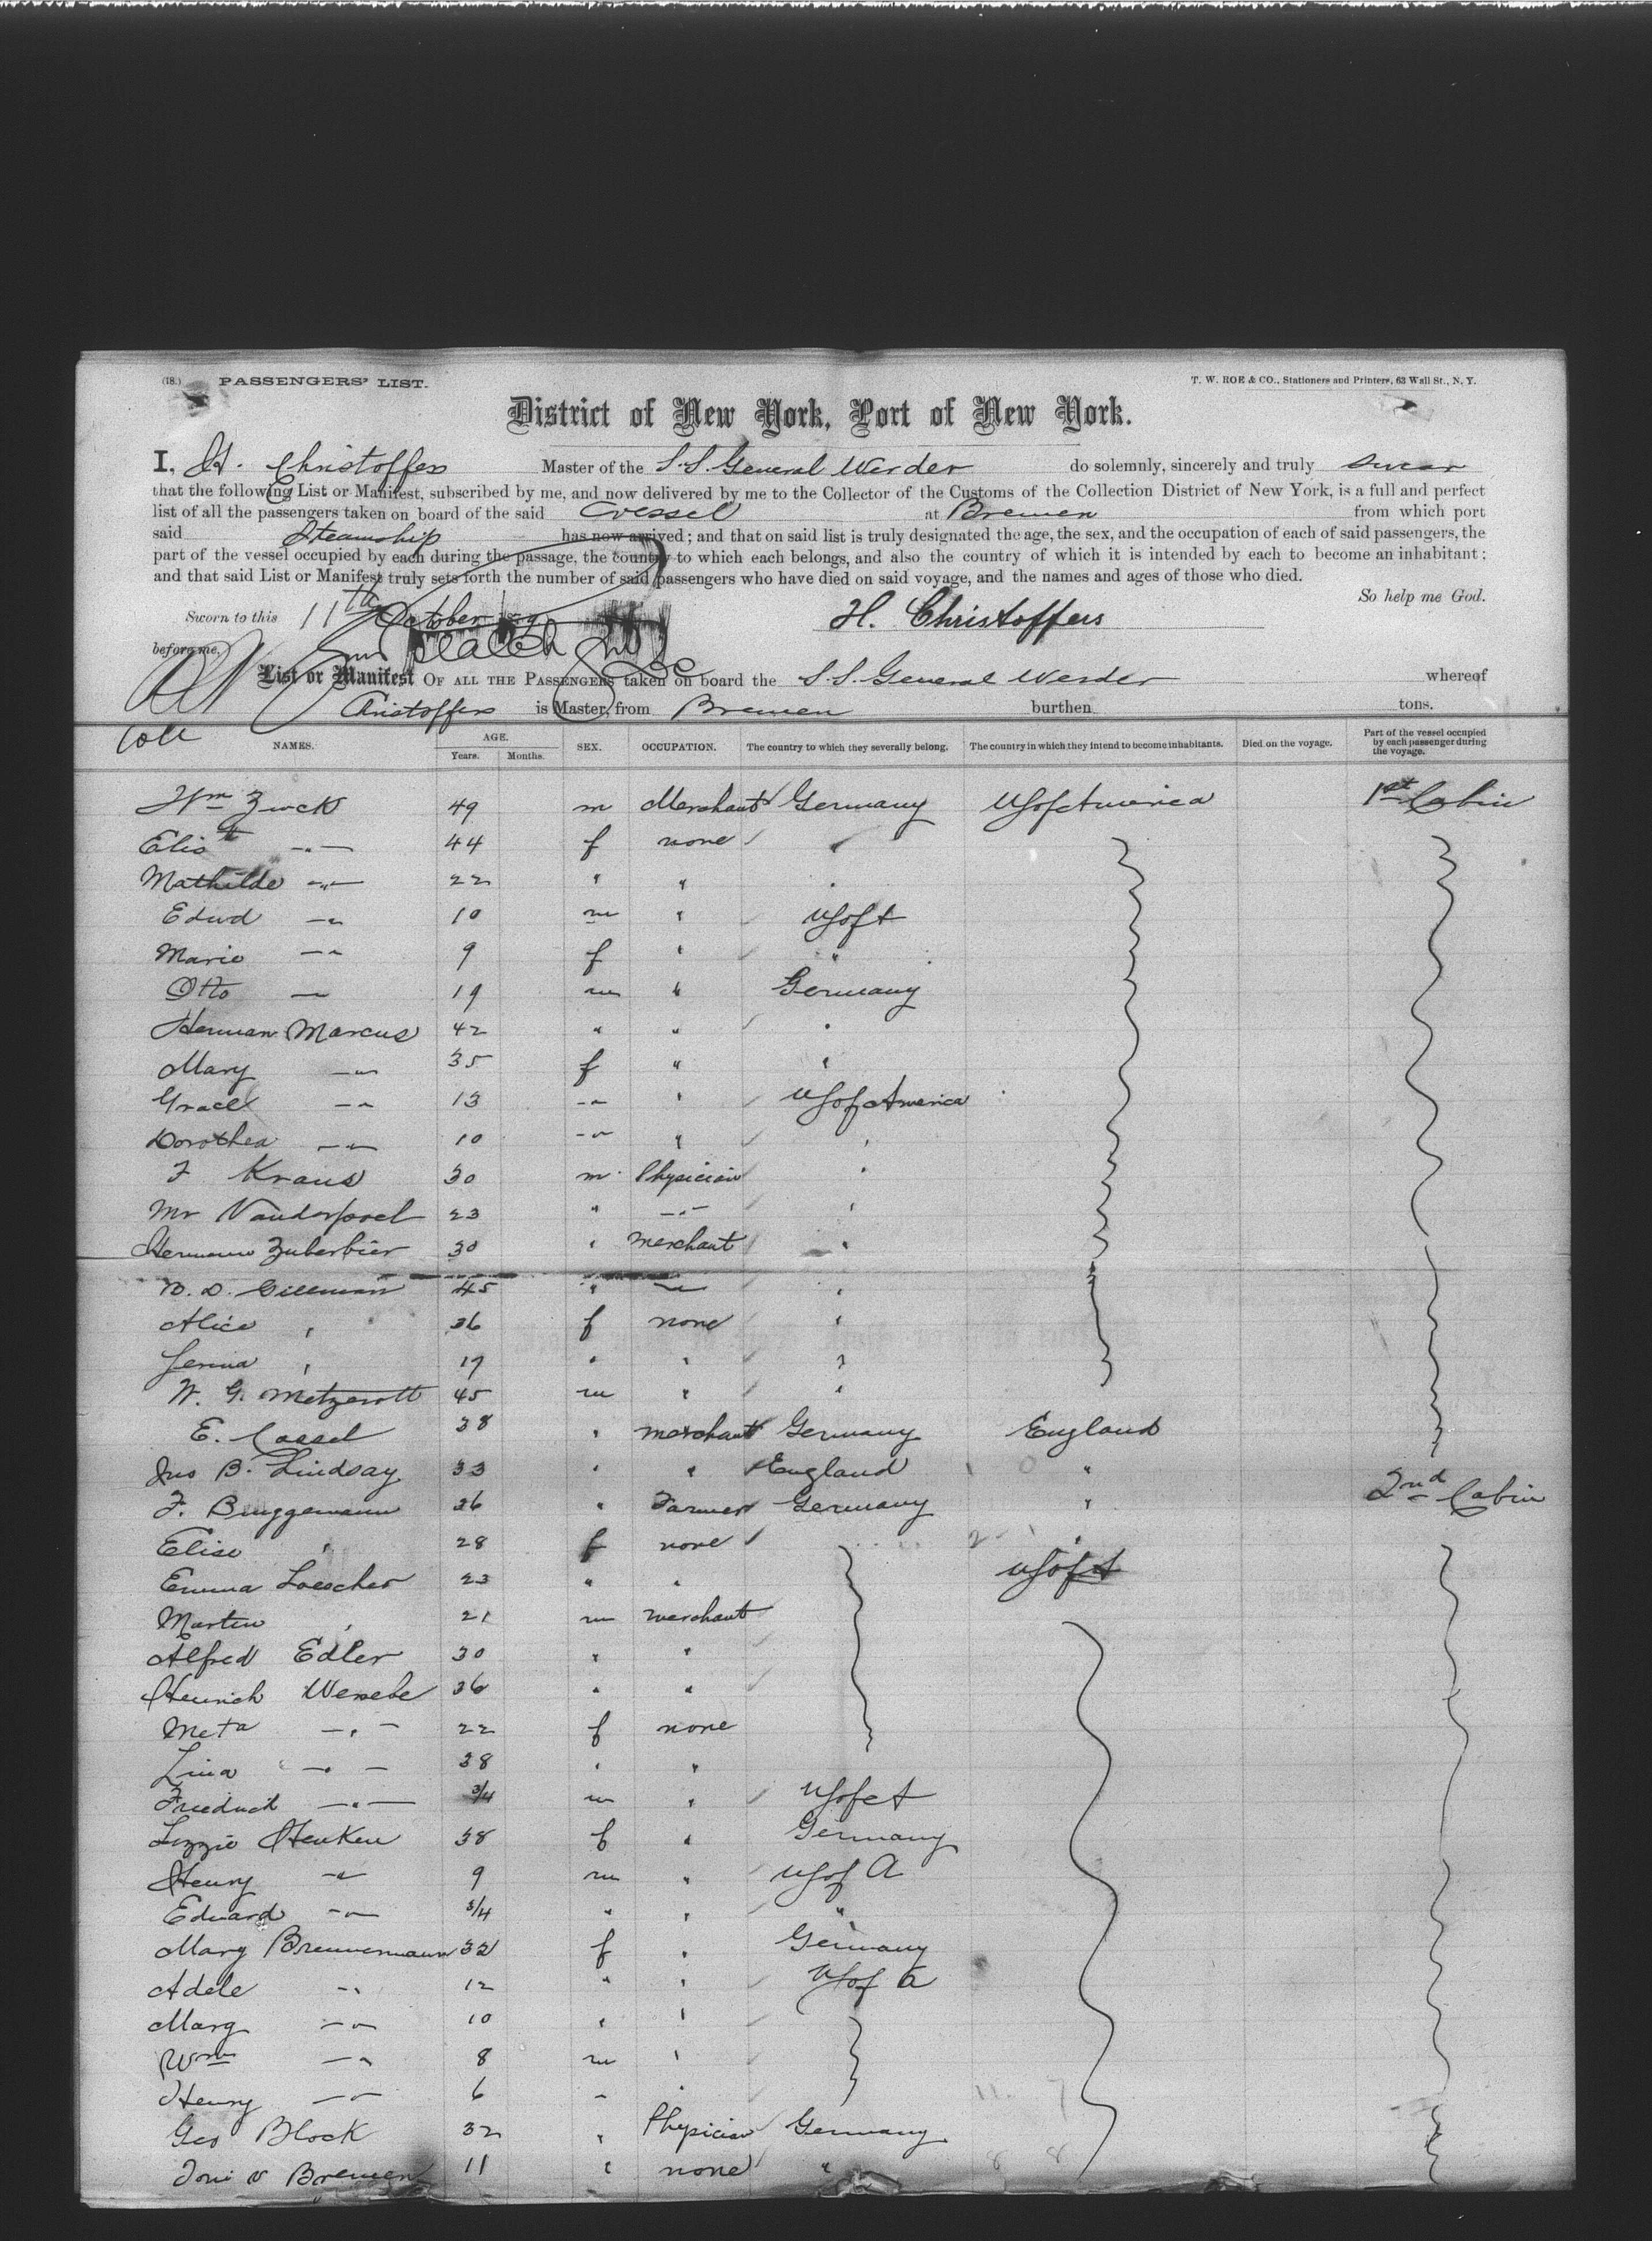 (18.) PASSENGERS' LIST. T. W. ROE & CO., Stationers and Printers, 63 Wall St., N. Y.
District of New York, Port of New York.
I, H. Christoffers Master of the S.S. General Werder do solemnly, sincerely and truly swear
that the following List or Manifest, subscribed by me, and now delivered by me to the Collector of the Customs of the Collection District of New York, is a full and perfect
list of all the passengers taken on board of the said vessel at Bremen from which port
said Steamship has now arrived; and that on said list is truly designated the age, the sex, and the occupation of each of said passengers, the
part of the vessel occupied by each during the passage, the country to which each belongs, and also the country of which it is intended by each to become an inhabitant;
and that said List or Manifest truly sets forth the number of said passengers who have died on said voyage, and the names and ages of those who died.
So help me God.
Sworn to this 11th October 89 H. Christoffers
before me,
List or Manifest OF ALL THE PASSENGERS taken on board the S.S. General Werder whereof
Christoffers is Master, from Bremen burthen tons.
NAMES. AGE. Years. Months. SEX. OCCUPATION. The country to which they severally belong. The country in which they intend to become inhabitants. Died on the voyage. Part of the vessel occupied by each passenger during the voyage.
Wm Zwck 49 m Merchant Germany US of America 1st Cabin
Elisth -"- 44 f none "
Mathilde -"- 22 " " "
Edwd -" 10 m " US of A
Marie -" 9 f " "
Otto - 19 m " Germany
Herman Marcus 42 " " "
Mary -"- 35 f " "
Grace -" 13 -" " US of America
Dorothea -"- 10 -" " "
F Kraus 30 m Physician "
Mr Vanderpoel 23 " -"- "
Hermann Zuberbier 30 " merchant "
Gillman 45 " -"- "
Alice " 36 f none "
" 17 " " "
W. G. Metzerott 45 m " "
E. Cassel 38 " merchant Germany England
Jno B. Lindsay 33 " " England "
F. Bruggemann 26 " Farmer Germany " 2nd Cabin
Elise " 28 f none "
Emma Loescher 23 " " US of A
Martin " 21 m merchant
Alfred Edler 30 " "
Heinrich Wersebe 36 " "
Meta -"- 22 f none
Lina -"- 38 " "
Friedrich -"- 3/4 m " US of A
Lizzie Henken 38 f " Germany
Henry -" 9 m " US of A
Eduard -"- 3/4 " " "
Mary Brennermann 32 f " Germany
Adele -" 12 " " US of A
Marg -"- 10 " "
Wm -" 8 m "
Henry -"- 6 - "
Geo Block 32 " Physician Germany
Toni v Bremen 11 " none "